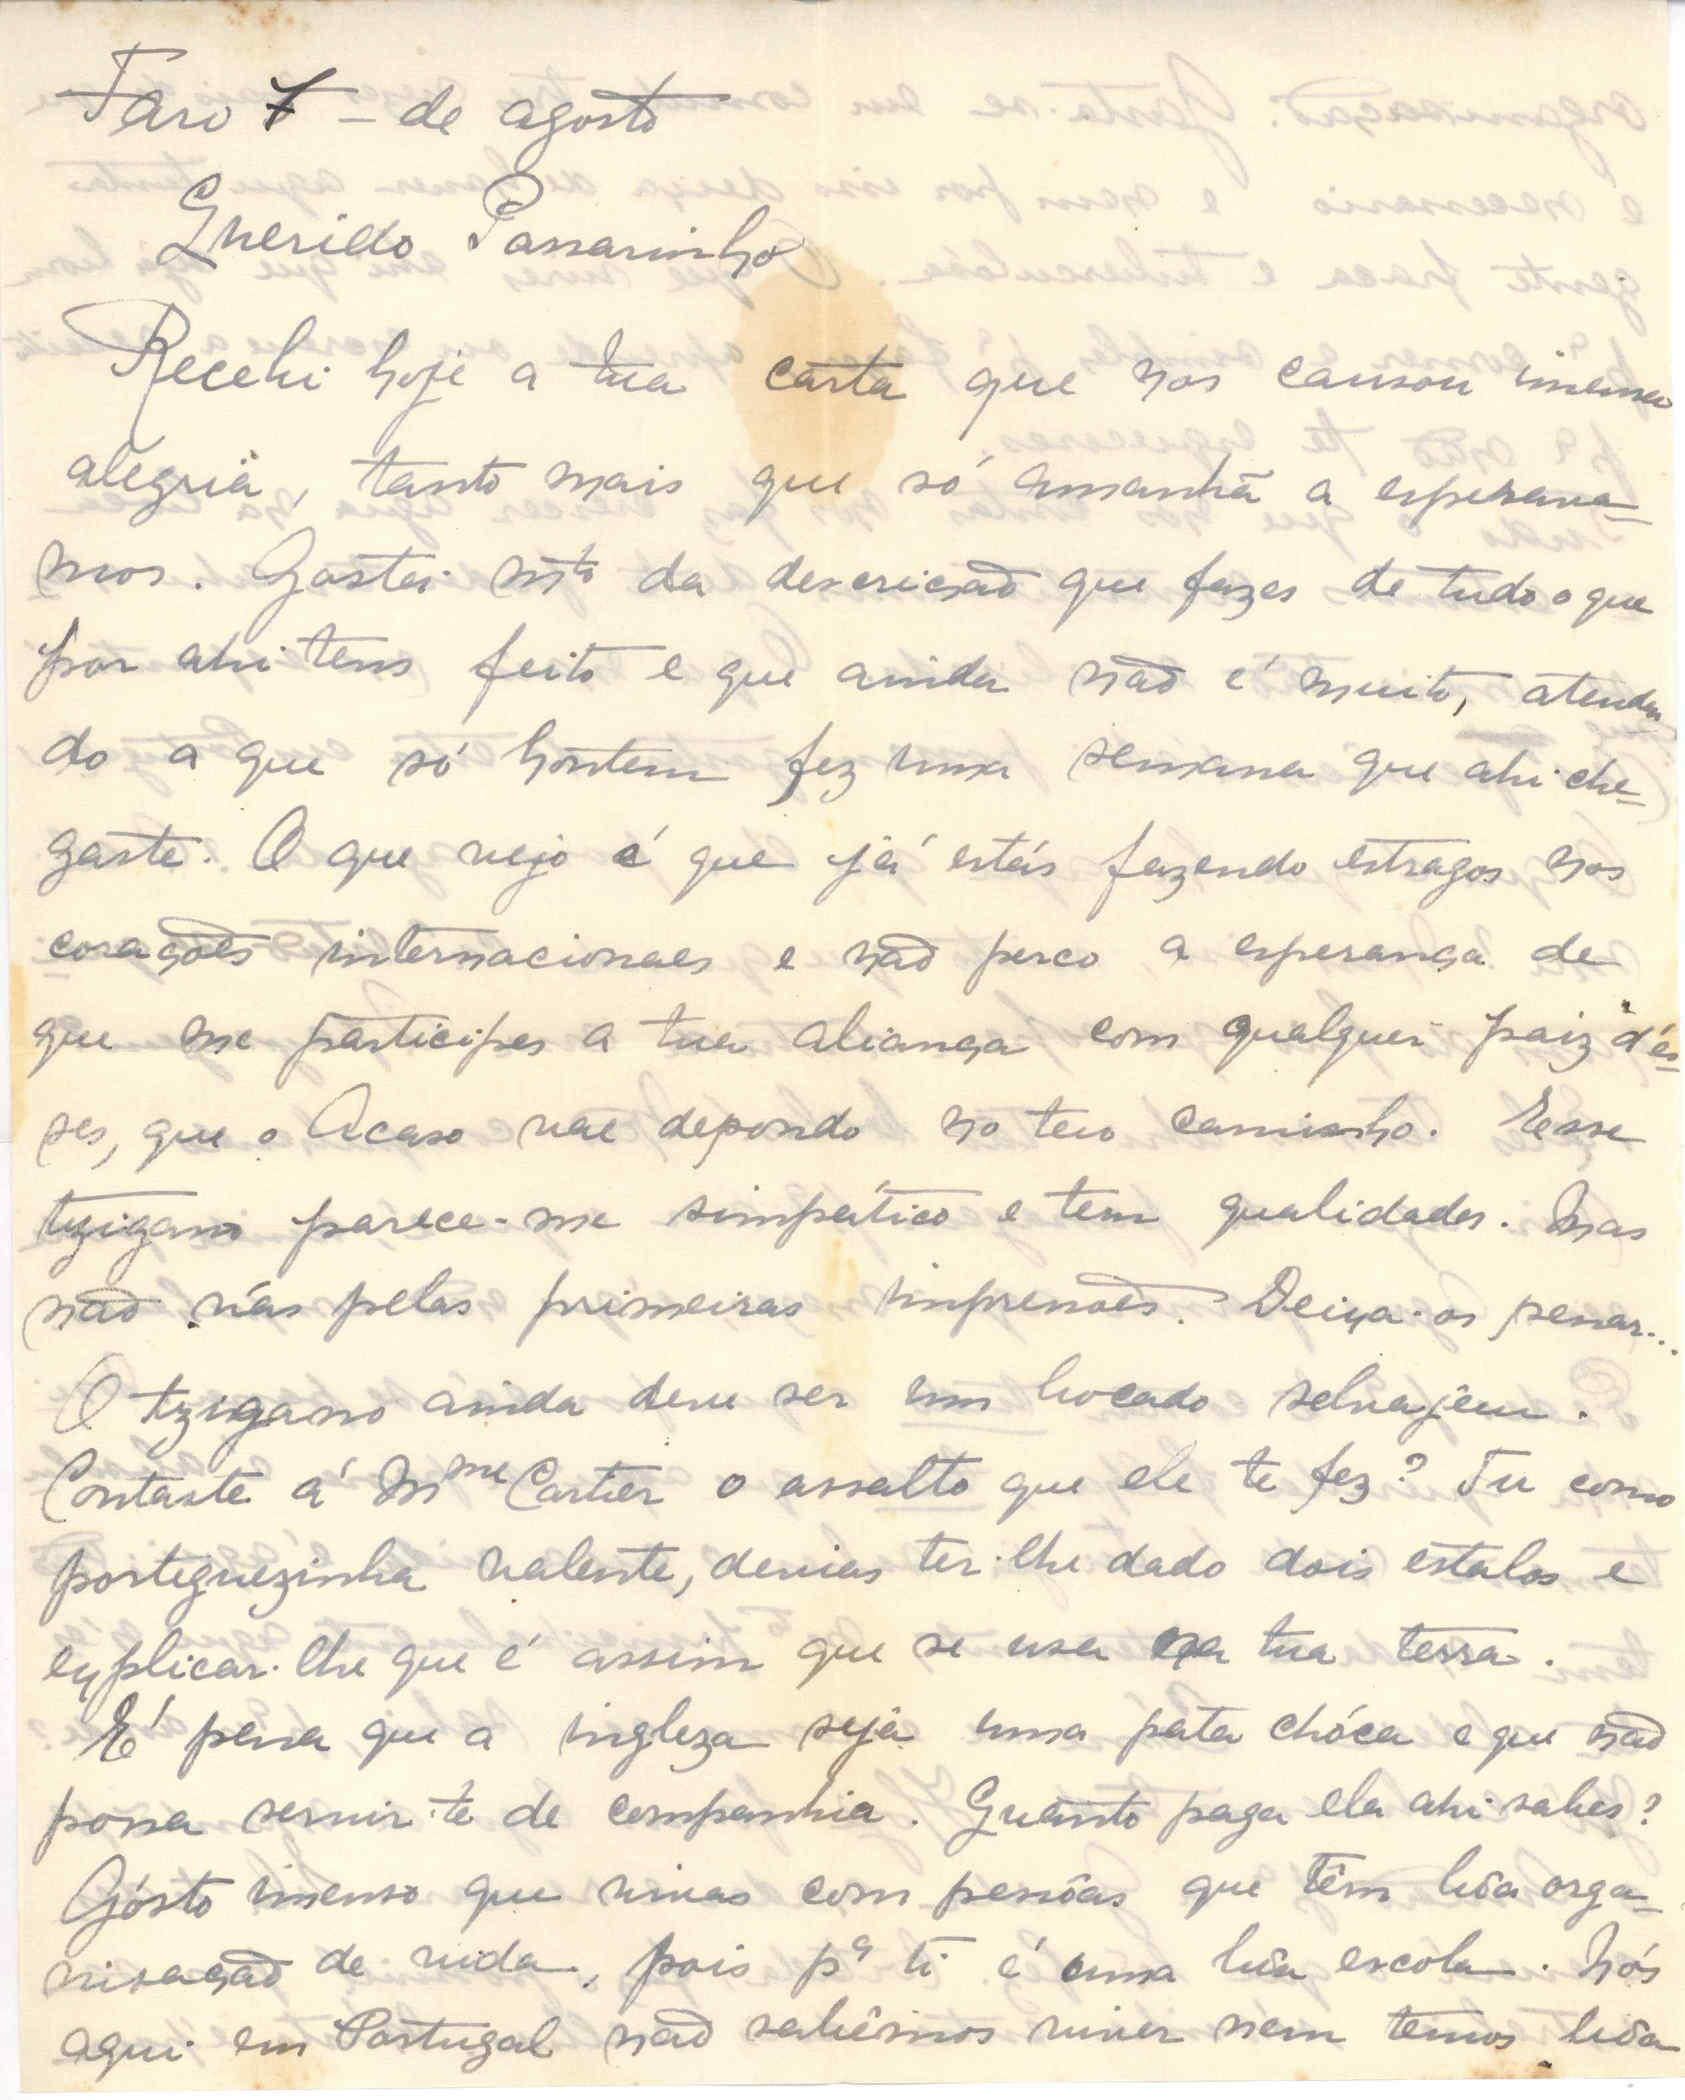 Faro 7 - de agosto
Querido Passarinho
Recebi hoje a tua carta que nos causou imensa
alegria, tanto mais que só amanhã a esperava-
mos. Gostei mto da descrição que fazes de tudo o que
por ahi tens feito e que ainda não é muito, atenden-
do a que só hontem fez uma semana que ahi che-
gaste. O que vejo é que já estás fazendo estragos nos
corações internacionaes e não perco a esperança de
que me participes a tua aliança com qualquer paiz d'ês-
ses, que o Acaso vae depondo no teu caminho. Esse
tzigano parece-me simpático e tem qualidades. Mas
não vás pelas primeiras impressões. Deixa-os penar...
O tzigano ainda deve ser um bocado selvajem.
Contaste á Mme Cartier o assalto que ele te fez? Tu como
portuguezinha valente, devias ter-lhe dado dois estalos e
explicar-lhe que é assim que se usa na tua terra.
É pena que a ingleza seja uma pata chóca e que não
possa servir-te de companhia. Quanto paga ela ahi sabes?
Gósto imenso que vivas com pessôas que têm bôa orga-
nisação de vida, pois pª ti é uma bôa escola. Nós
aqui em Portugal não sabêmos viver nem temos bôa